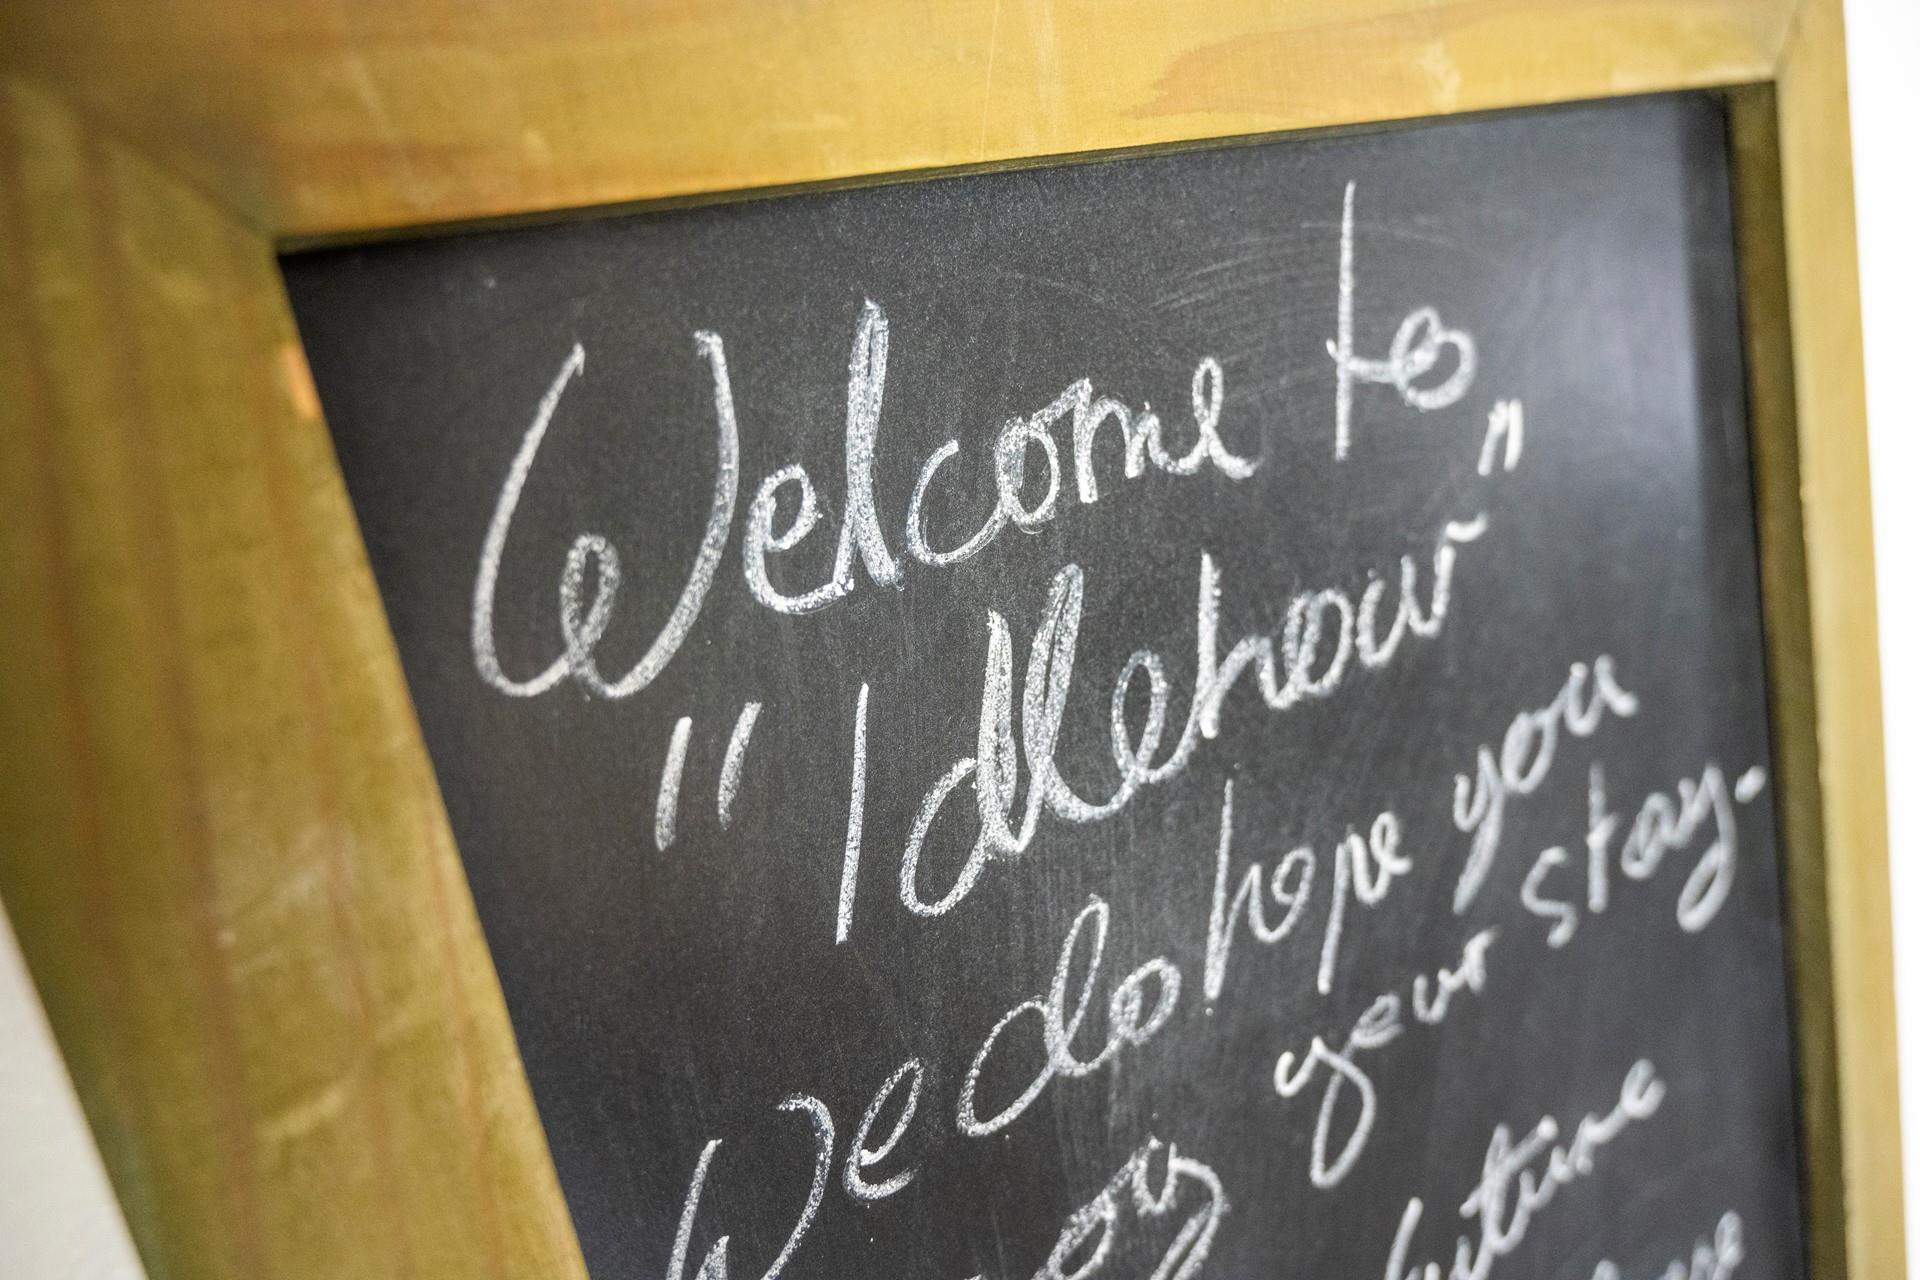 Welcome to
"Idlehour"
We do hope you
your stay.